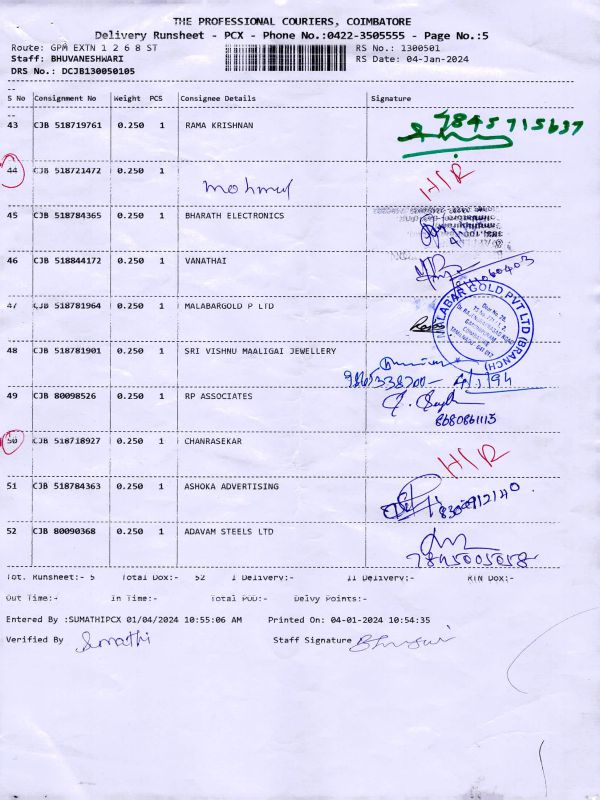 THE PROFESSIONAL COURIERS, COIMBATORE
Delivery Runsheet - PCX - Phone No.:0422-3505555 - Page No.:5
Route: GPM EXTN 1 2 6 8 ST RS No.: 1300501
Staff: BHUVANESHWARI RS Date: 04-Jan-2024
DRS No.: DCJB130050105
S No Consignment No Weight PCS Consignee Details Signature
43 CJB 518719761 0.250 1 RAMA KRISHNAN 7845715637
44 CJB 518721472 0.250 1 H/R
45 CJB 518784365 0.250 1 BHARATH ELECTRONICS
46 CJB 518844172 0.250 1 VANATHAI
47 CJB 518781964 0.250 1 MALABARGOLD P LTD
MALABAR GOLD PVT LTD (BRANCH)
48 CJB 518781901 0.250 1 SRI VISHNU MAALIGAI JEWELLERY
49 CJB 80098526 0.250 1 RP ASSOCIATES
8680861113
50 CJB 518718927 0.250 1 CHANRASEKAR H/R
51 CJB 518784363 0.250 1 ASHOKA ADVERTISING
52 CJB 80090368 0.250 1 ADAVAM STEELS LTD
7845005058
Tot. Runsheet:- 5 Total Dox:- 52 I Delivery:- II Delivery:- RTN Dox:-
Out Time:- In Time:- Total POD:- Delvy Points:-
Entered By :SUMATHIPCX 01/04/2024 10:55:06 AM Printed On: 04-01-2024 10:54:35
Verified By Sumathi Staff Signature